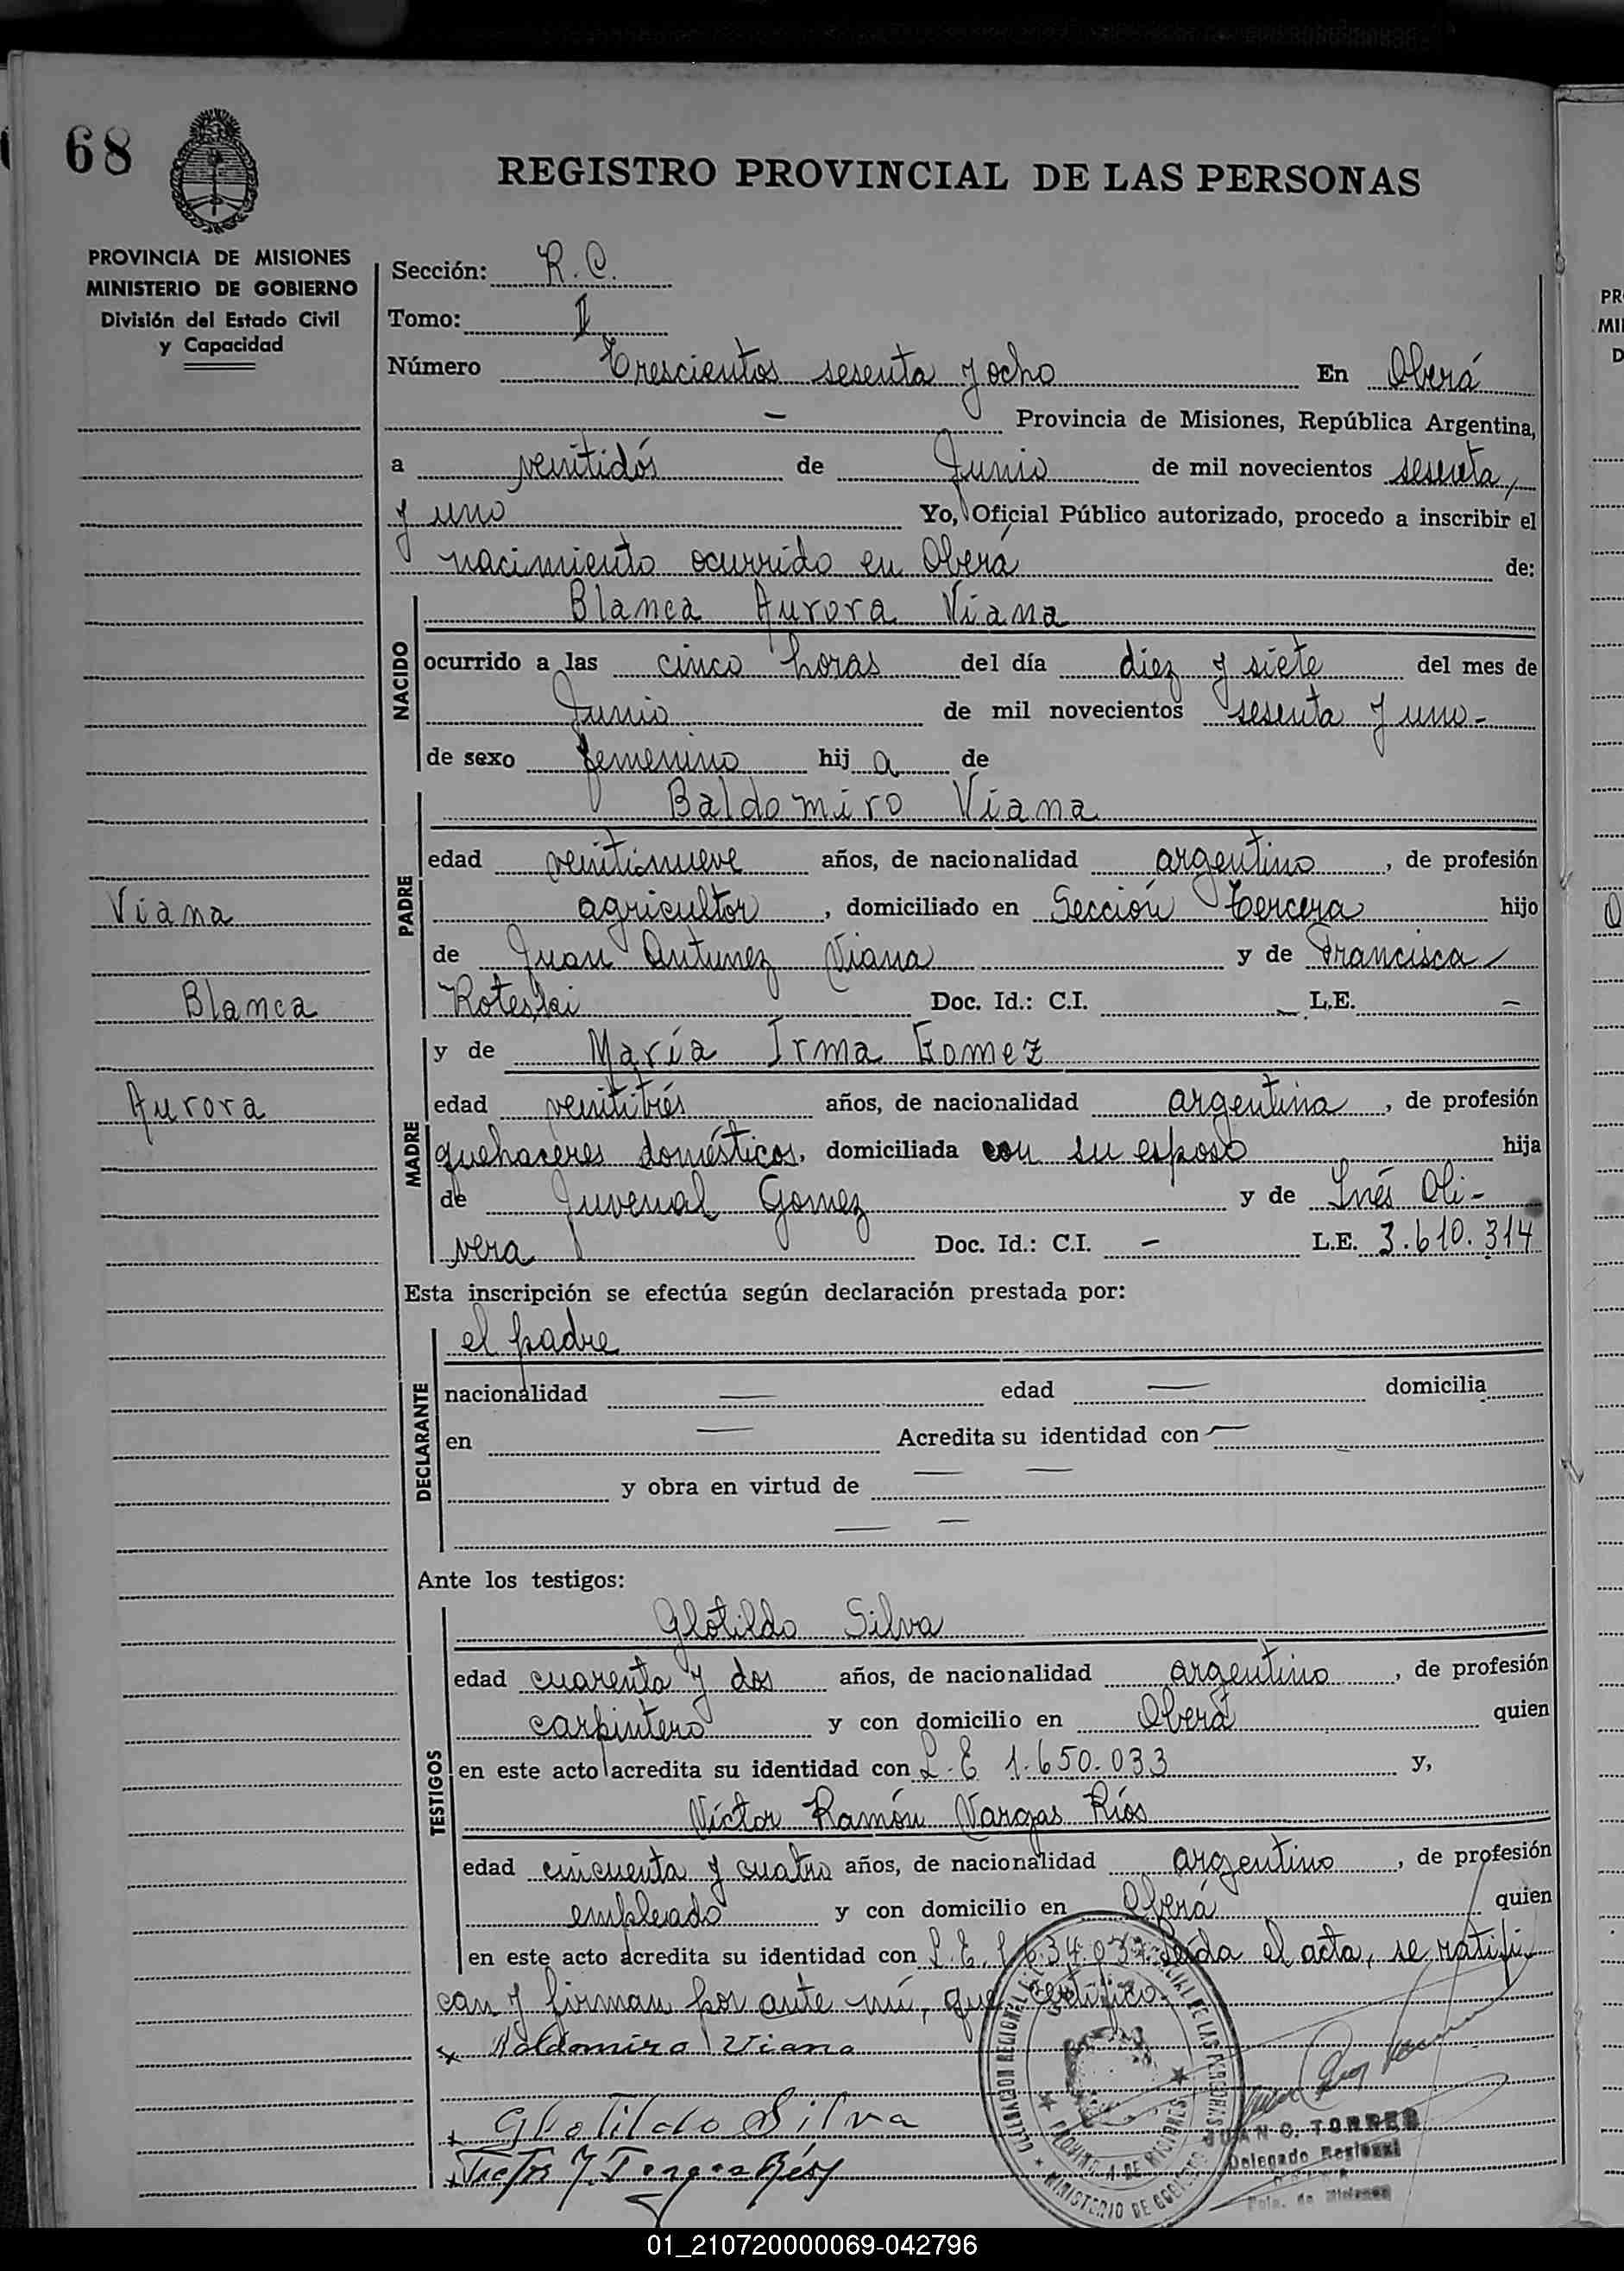 68
REGISTRO PROVINCIAL DE LAS PERSONAS
PROVINCIA DE MISIONES
MINISTERIO DE GOBIERNO
División del Estado Civil
y Capacidad
Sección: R. C.
Tomo: I
Número Trescientos sesenta y ocho En Oberá
– Provincia de Misiones, República Argentina,
a veintidós de Junio de mil novecientos sesenta
y uno Yo, Oficial Público autorizado, procedo a inscribir el
nacimiento ocurrido en Oberá de:
NACIDO
Blanca Aurora Viana
ocurrido a las cinco horas del día diez y siete del mes de
Junio de mil novecientos sesenta y uno -
de sexo femenino hij a de
PADRE
Baldomiro Viana
edad veintinueve años, de nacionalidad argentino, de profesión
agricultor, domiciliado en Sección Tercera hijo
de Juan Antunez Viana y de Francisca
Doc. Id.: C.I. – L.E. –
Viana
Blanca
Aurora
MADRE
y de María Irma Gomez
edad veintitrés años, de nacionalidad argentina, de profesión
quehaceres domésticos, domiciliada con su esposo hija
de Juvenal Gomez y de Inés Oli-
vera Doc. Id.: C.I. – L.E. 3.610.314
Esta inscripción se efectúa según declaración prestada por:
DECLARANTE
el padre
nacionalidad — edad — domicilia
en — Acredita su identidad con —
y obra en virtud de — —
— —
Ante los testigos:
TESTIGOS
Glotildo Silva
edad cuarenta y dos años, de nacionalidad argentino, de profesión
carpintero y con domicilio en Oberá quien
en este acto acredita su identidad con L.E 1.650.033 y,
Víctor Ramón Vargas Ríos
edad cincuenta y cuatro años, de nacionalidad argentino, de profesión
empleado y con domicilio en Oberá quien
en este acto acredita su identidad con L.E. Leída el acta, se ratifi-
can y firman por ante mí, que certifico.
x Baldomiro Viana
x Glotildo Silva
JUAN C. TORRES
Delegado Regional
Pcia. de Misiones
MINISTERIO DE GOBIERNO
PROVINCIA DE MISIONES
01_210720000069-042796